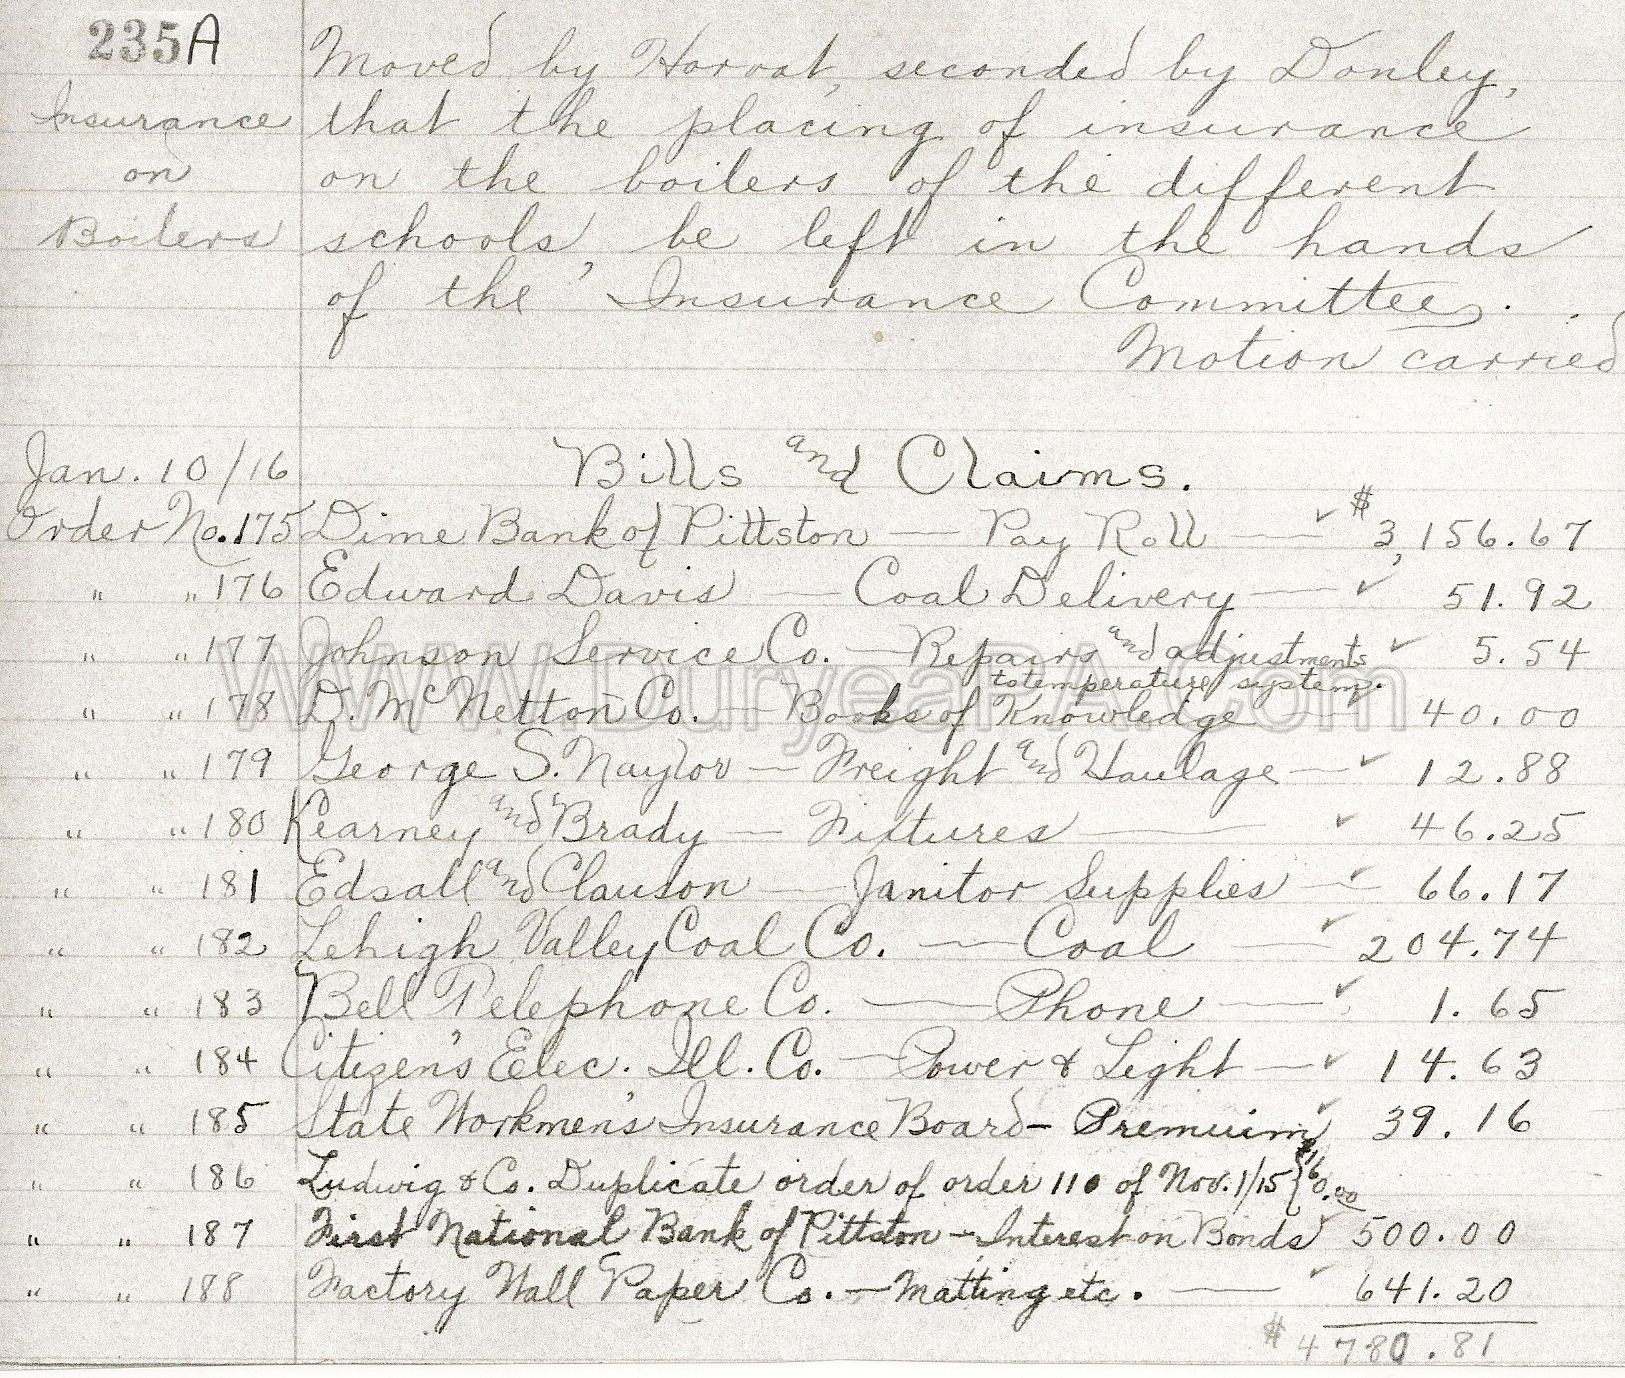 235A
Moved by Horvat, seconded by Donley,
Insurance that the placing of insurance
on on the boilers of the different
Boilers schools, be left in the hands
of the Insurance Committee.
Motion carried
Jan. 10/16 Bills and Claims.
Order No. 175 Dime Bank of Pittston — Pay Roll — ✓ $3,156.67
" " 176 Edward Davis — Coal Delivery — ✓ 51.92
" " 177 Johnson Service Co. — Repairs and adjustments ✓ 5.54
to temperature system.
" " 178 D. McNetton Co. — Books of Knowledge — 40.00
" " 179 George S. Naylor — Freight and Haulage — ✓ 12.88
" " 180 Kearney and Brady — Fixtures — ✓ 46.25
" " 181 Edsall and Clauson — Janitor Supplies — ✓ 66.17
" " 182 Lehigh Valley Coal Co. — Coal — ✓ 204.74
" " 183 Bell Telephone Co. — Phone — ✓ 1.65
" " 184 Citizen's Elec. Ill. Co. — Power & Light — ✓ 14.63
" " 185 State Workmen's Insurance Board — Premuim ✓ 39.16
" " 186 Ludwig & Co. Duplicate order of order 110 of Nov. 1/15 } $60.00
" " 187 First National Bank of Pittston — Interest on Bonds ✓ 500.00
" " 188 Factory Wall Paper Co. — Matting etc. — ✓ 641.20
$4780.81
WWW.DuryeaPA.Com